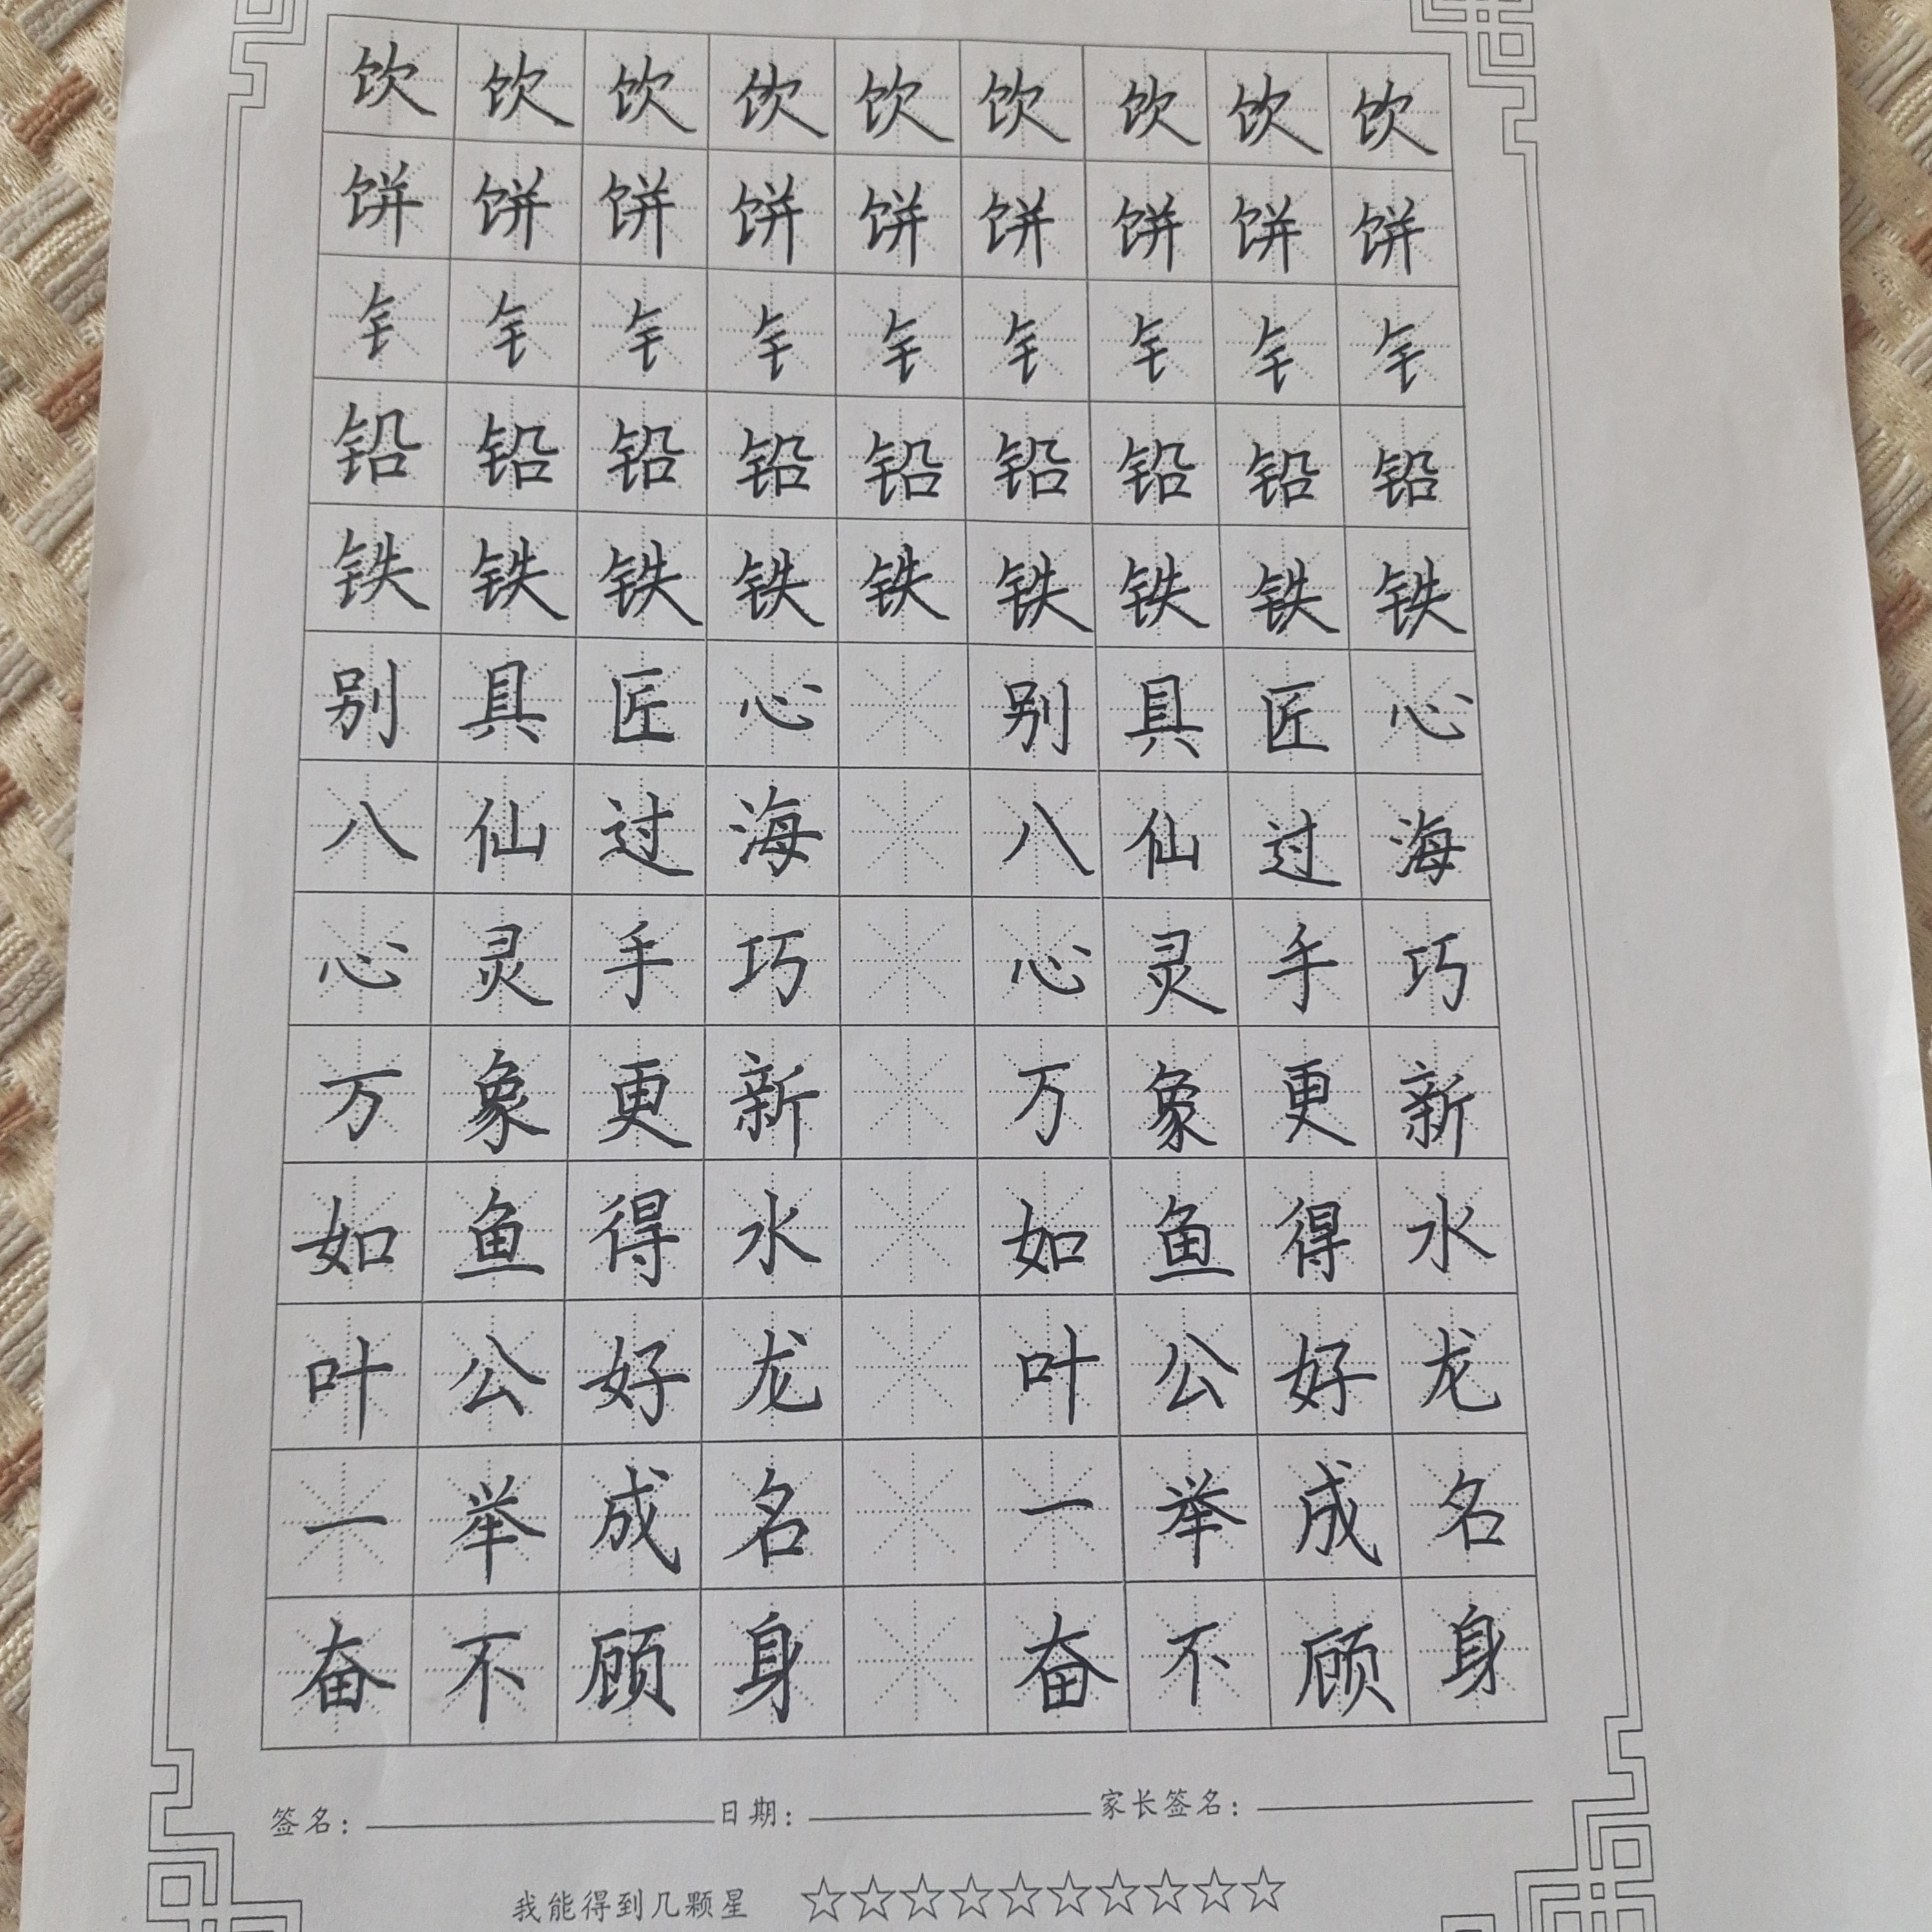 饮饮饮饮饮饮饮饮饮
饼饼饼饼饼饼饼饼饼
钅钅钅钅钅钅钅钅钅
铅铅铅铅铅铅铅铅铅
铁铁铁铁铁铁铁铁铁
别具匠心 别具匠心
八仙过海 八仙过海
心灵手巧 心灵手巧
万象更新 万象更新
如鱼得水 如鱼得水
叶公好龙 叶公好龙
一举成名 一举成名
奋不顾身 奋不顾身
签名： 日期： 家长签名：
我能得到几颗星 ☆☆☆☆☆☆☆☆☆☆